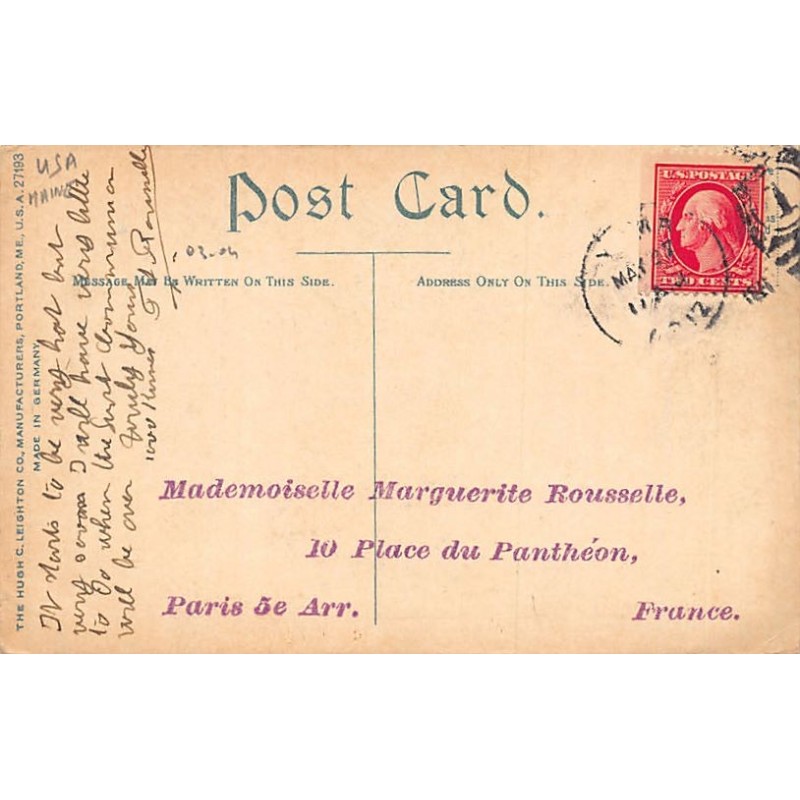 Post Card.
Message May be Written On This Side.
Address Only On This Side.
U.S. POSTAGE
TWO CENTS
MAY 27
1912
THE HUGH C. LEIGHTON CO., MANUFACTURERS, PORTLAND, ME., U.S.A. 27193
MADE IN GERMANY
USA
MAINE
03-04
It starts to be very hot but
very soon I will have very little
to do when the first Communion
will be over Truly Yours
1000 Kisses
Mademoiselle Marguerite Rousselle,
10 Place du Panthéon,
Paris 5e Arr. France.